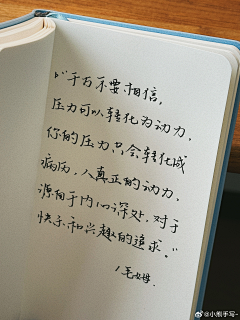 "千万不要相信,
压力可以轻化为动力,
你的压力只会轻化成
病历,人真正的动力,
源自于内心深处.对于
快乐和兴趣的追求."
/毛姆.
@小熊手写-